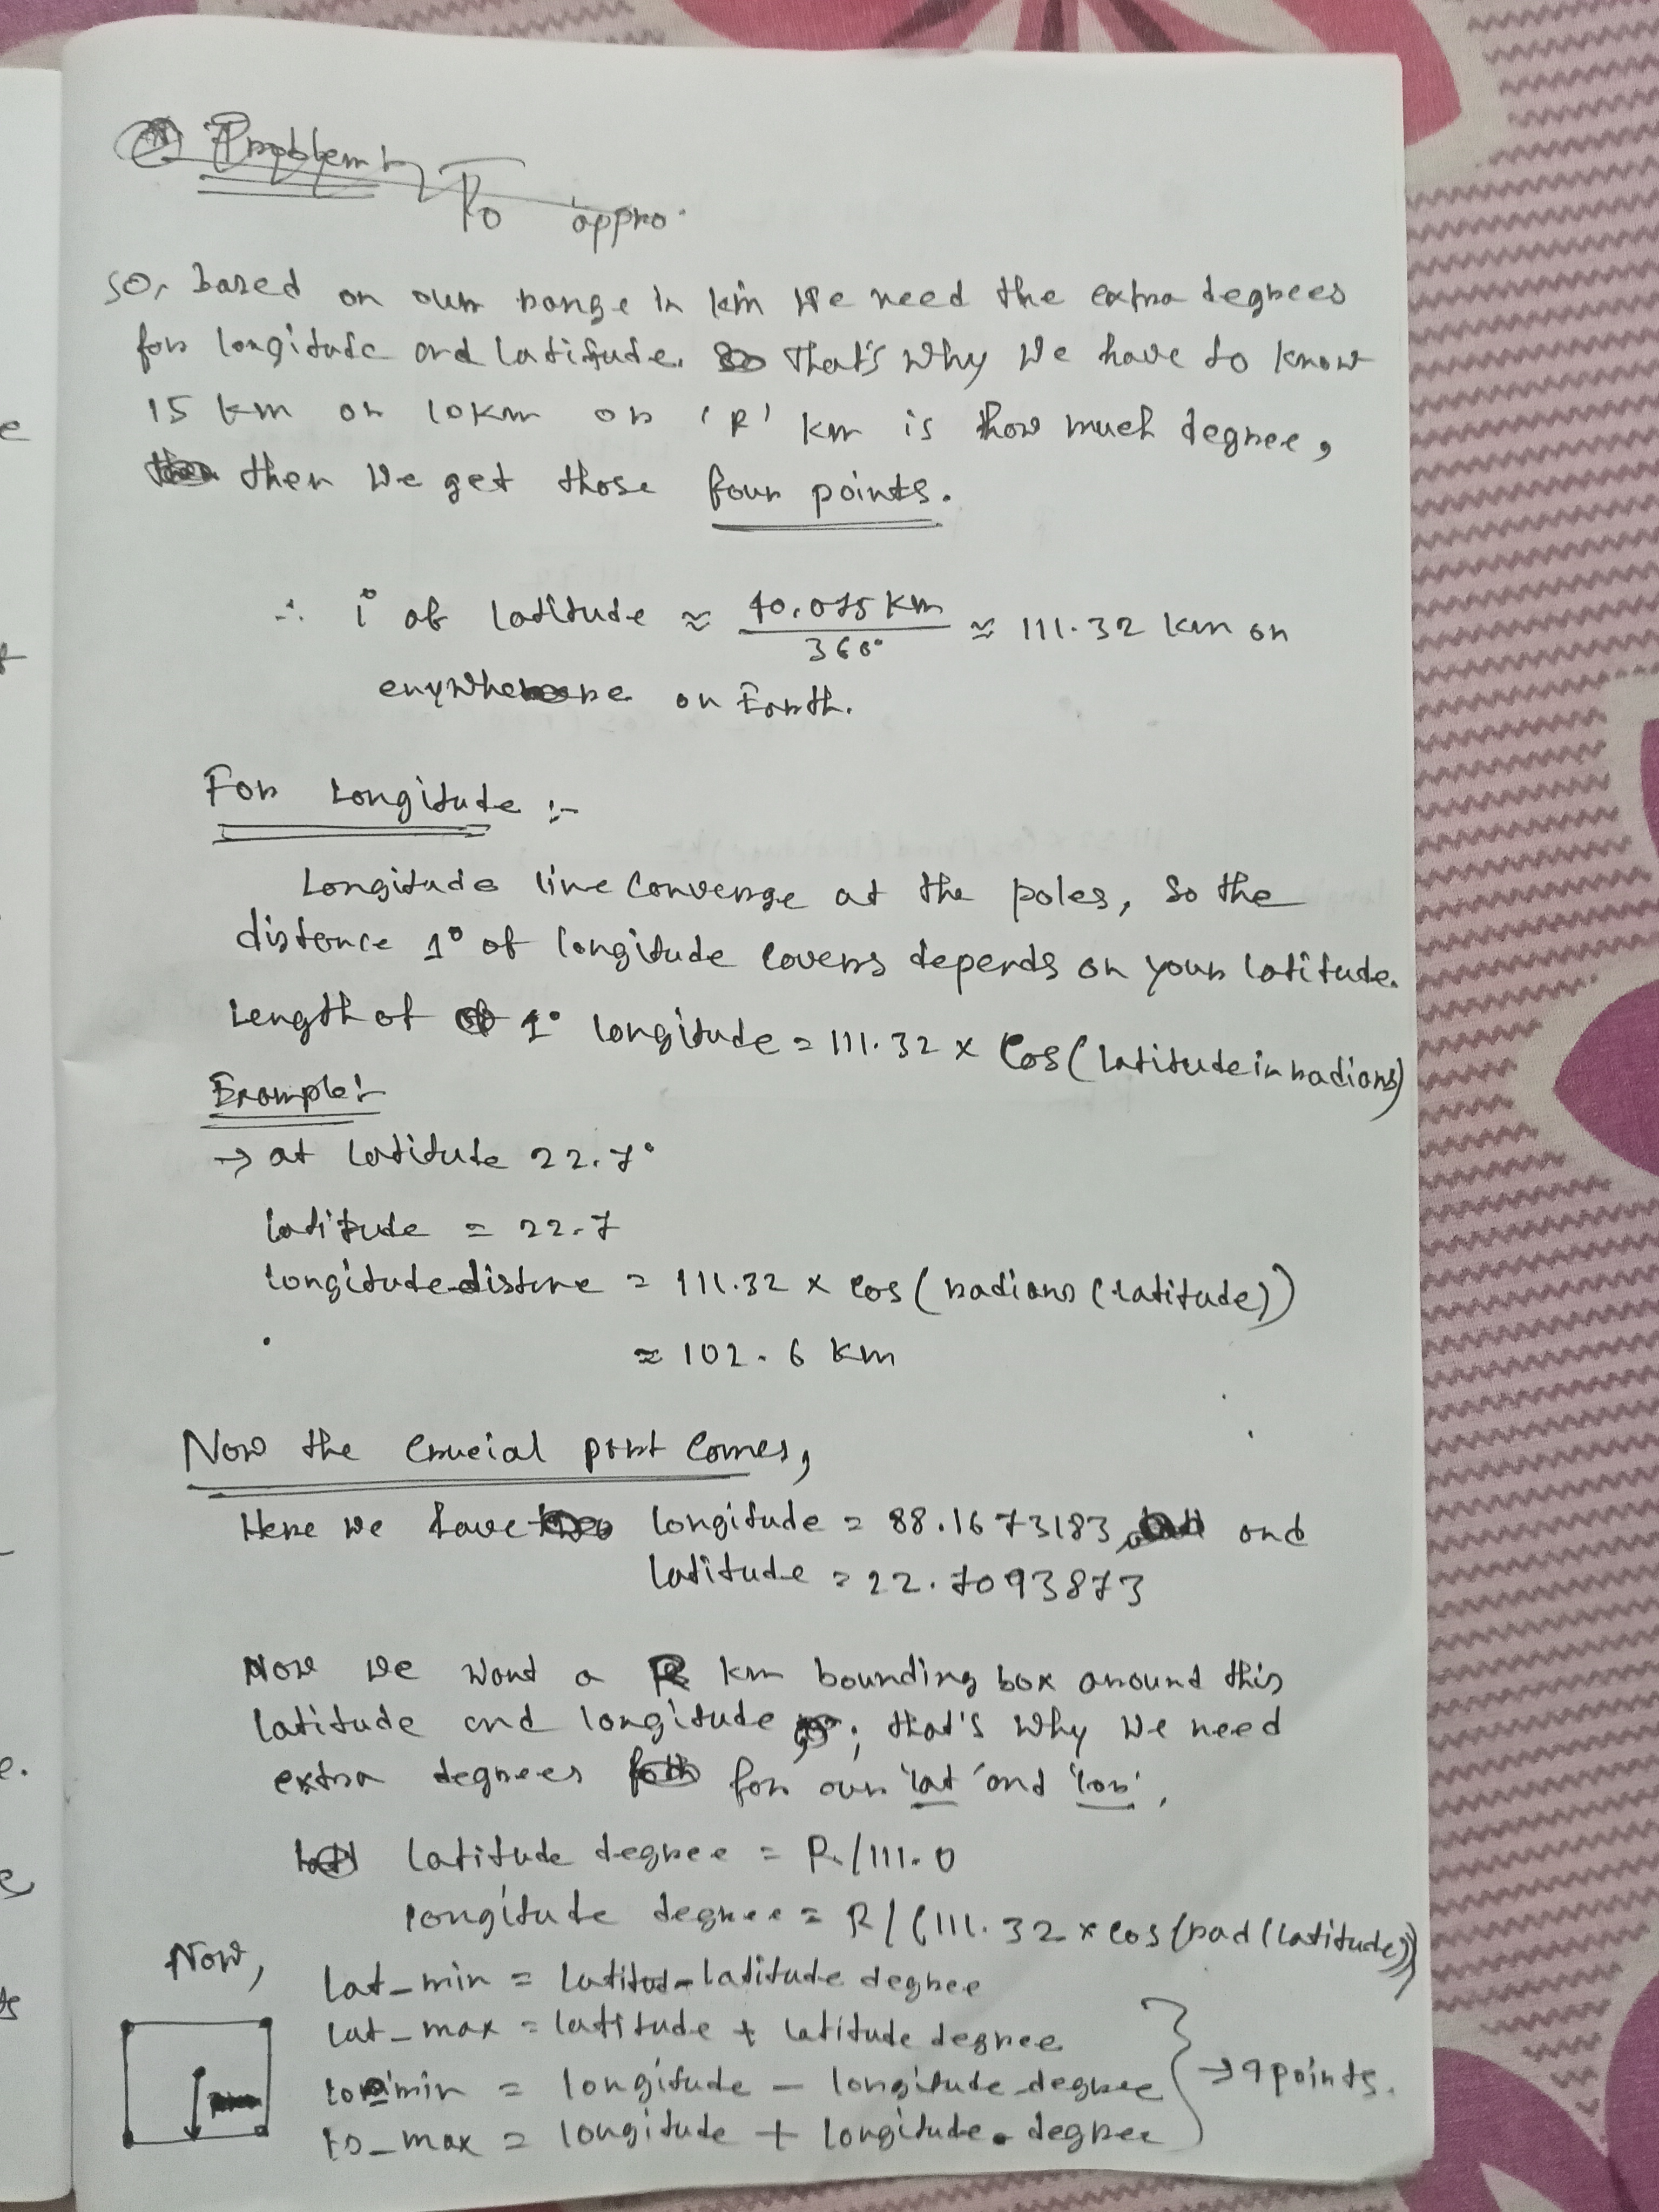 Problem :-
To appro.
So, based on our range in km we need the extra degrees
for longitude and latitude. That's why we have to know
15 km or 10km or 'R' km is how much degree,
then we get those four points.
∴ 1° of latitude ≈ 40,075 km / 360° ≈ 111.32 km on
enywhere on Earth.
For Longitude :-
Longitude line converge at the poles, so the
distance 1° of longitude covers depends on your latitude.
Length of 1° longitude = 111.32 × cos(latitude in radians)
Example :-
→ at latitude 22.7°
latitude = 22.7
longitude_distnce = 111.32 × cos(radians(latitude))
≈ 102.6 km
Now the crucial part comes,
Here we have longitude = 88.1673183 and
latitude = 22.7093873
Now we want a R km bounding box around this
latitude and longitude, that's why we need
extra degrees for our 'lat' and 'lon',
latitude degree = R/111.0
longitude degree = R/(111.32 × cos(rad(latitude)))
Now,
lat_min = latitud - latitude degree
lat_max = latitude + latitude degree
lo_min = longitude - longitude_degree
lo_max = longitude + longitude_degree
→ 4 points.